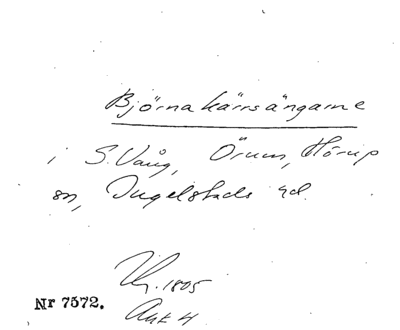 Björnakärrsängarne
i S. Vång, Örum, Hörup
sn, Ingelstads hd.
Uk. 1805
Akt 4
Nr 7572.